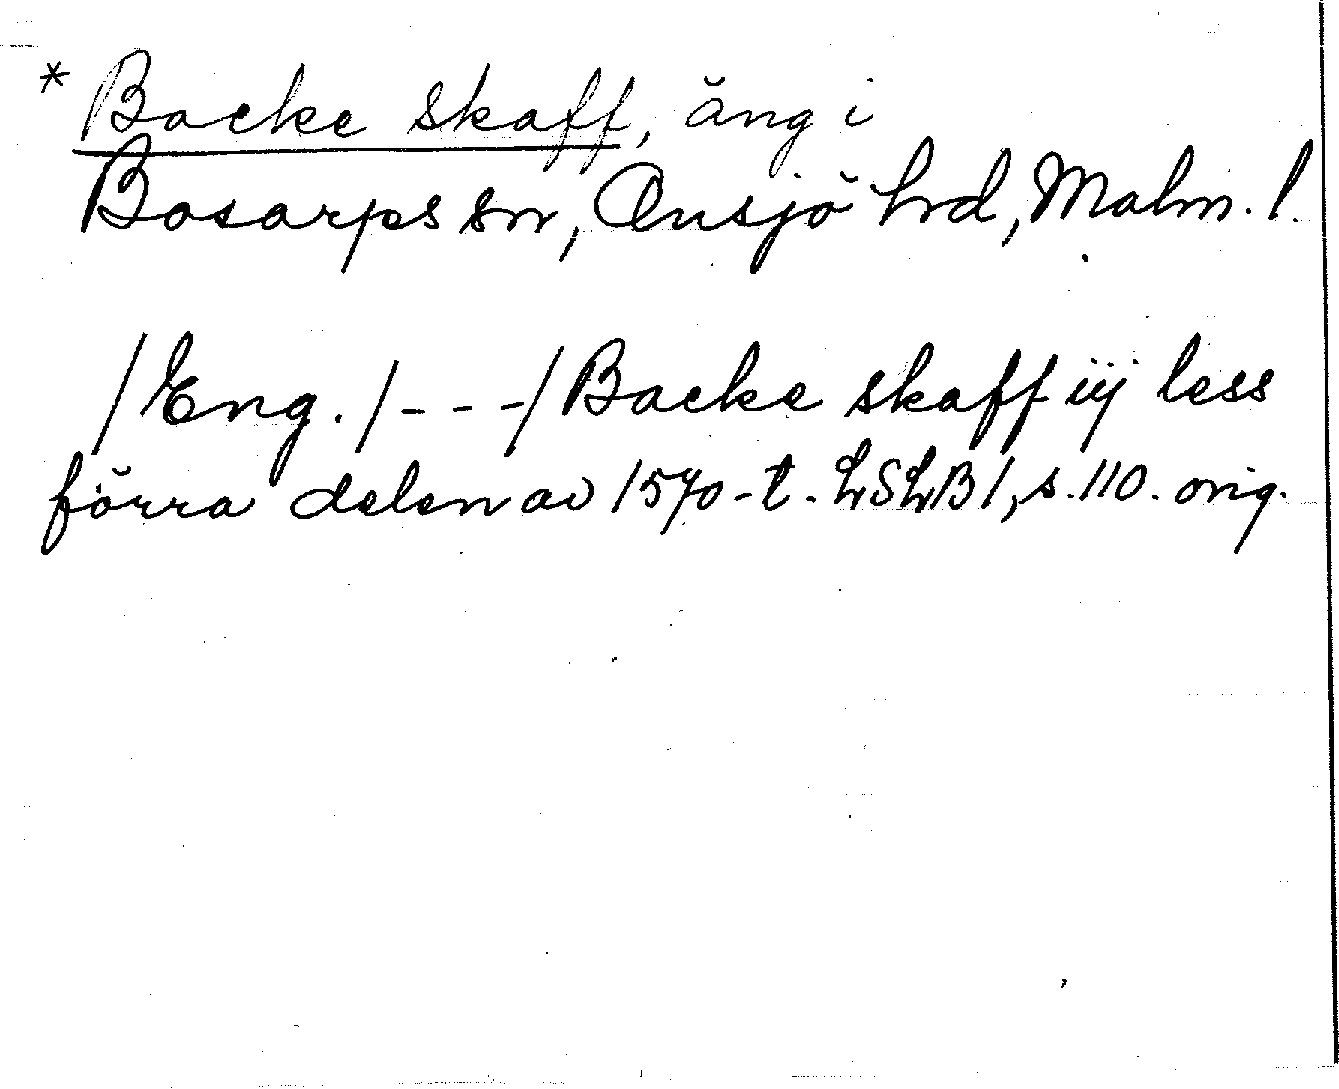 * Backe skaff, äng i
Bosarps sn, Onsjö hrd, Malm. l.
/Eng./ - - -/ Backe skaff iij less
förra delen av 1570-t. LSLB 1, s. 110. orig.